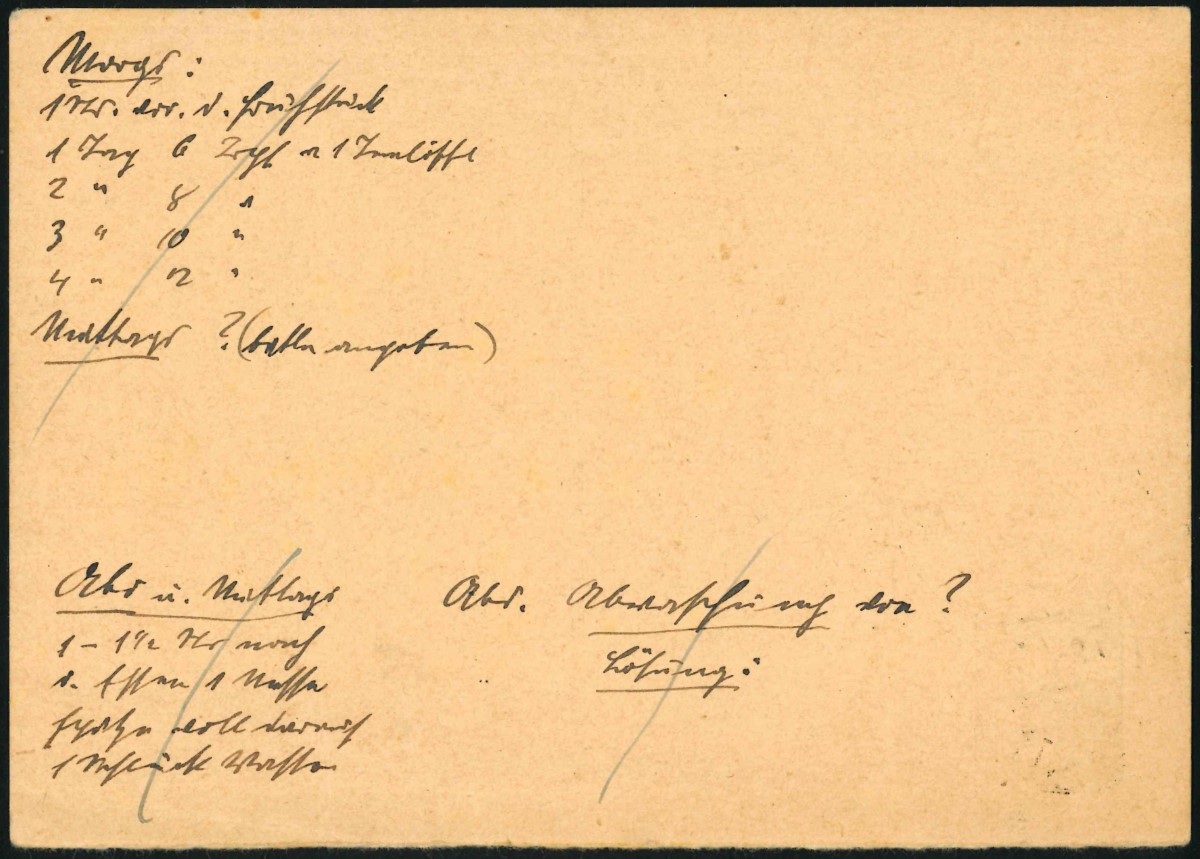 Morgs:
1 Std. vor. d. Frühstück
1 Tag 6 Tropf a 1 Teelöffel
2 " 8 "
3 " 10 "
4 " 12 "
Mittags ? (bitte angeben)
Abds u. Mittags
1 – 1 1/2 Std nach
d. Essen 1 Messer
spitze voll darauf
1 Schluck Wasser
Abds. Abwaschung von ?
Lösung: